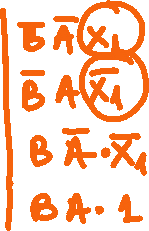 B̅ A̅ X₁
B̅ A X̅₁
B A̅·X̅₁
B A·1